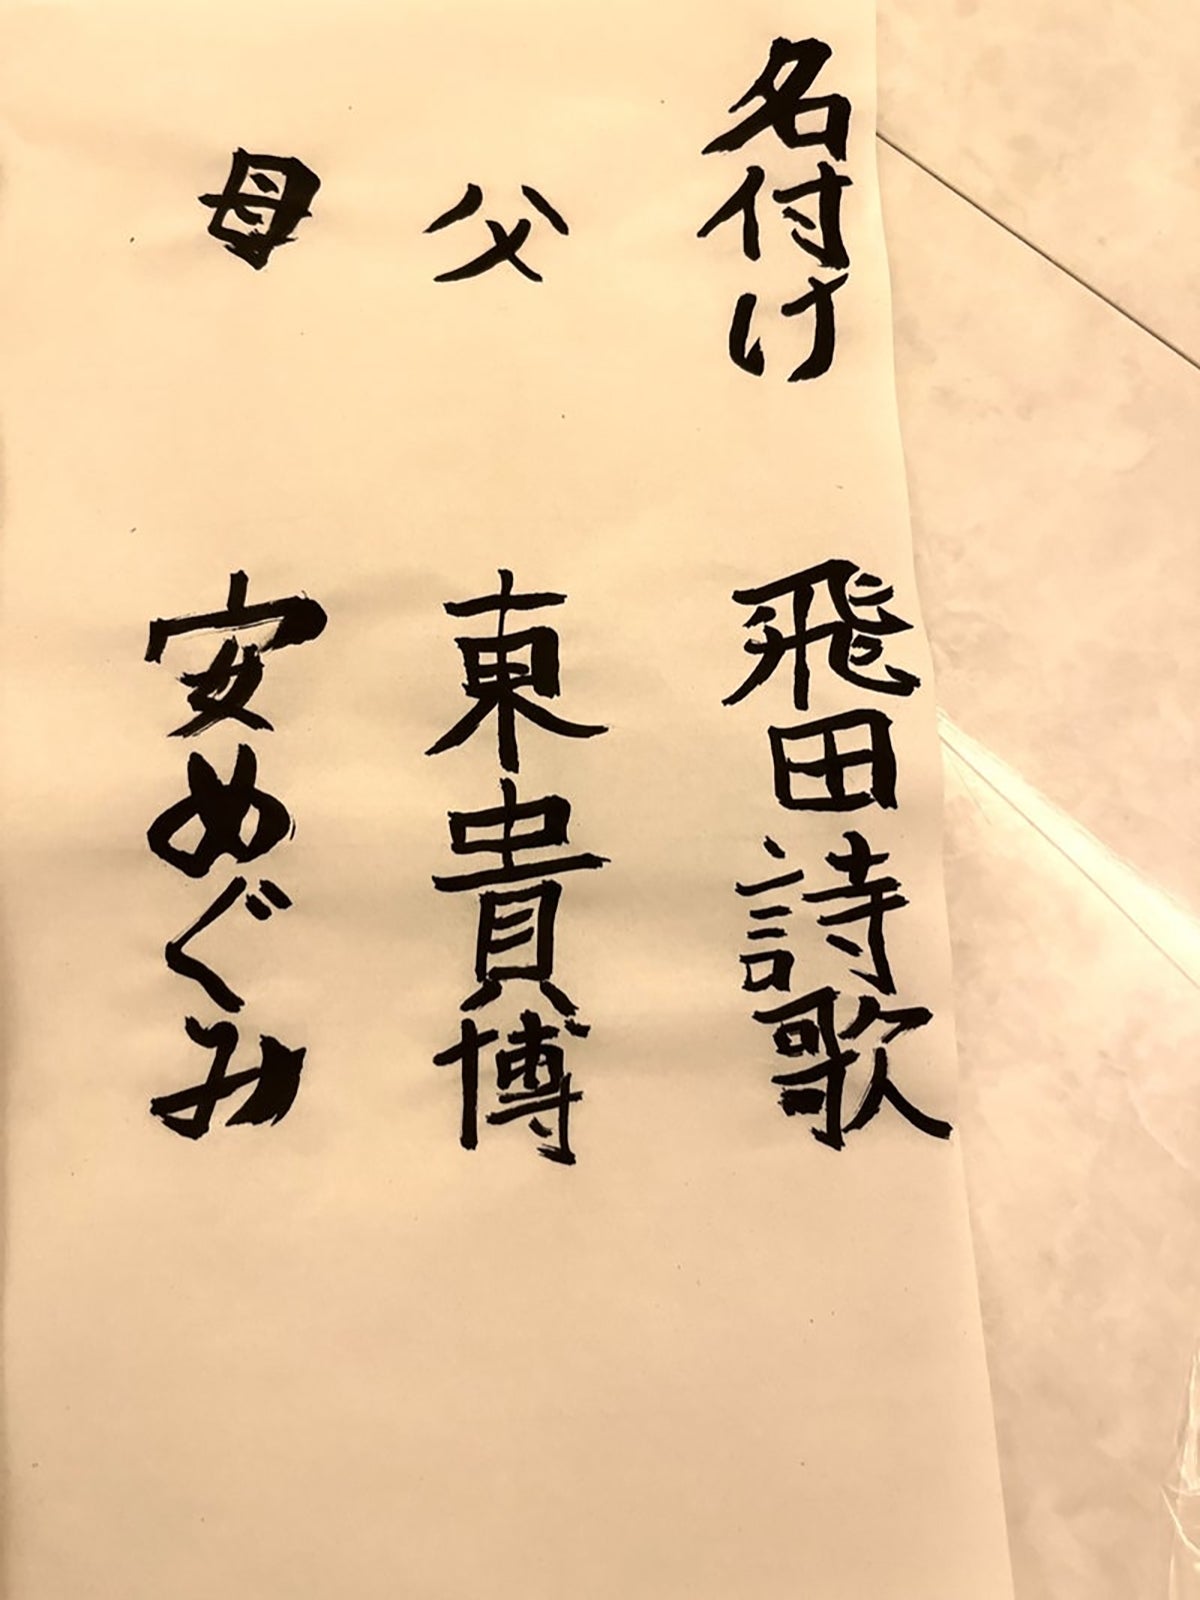 名付け 飛田詩歌
父 東貴博
母 安めぐみ